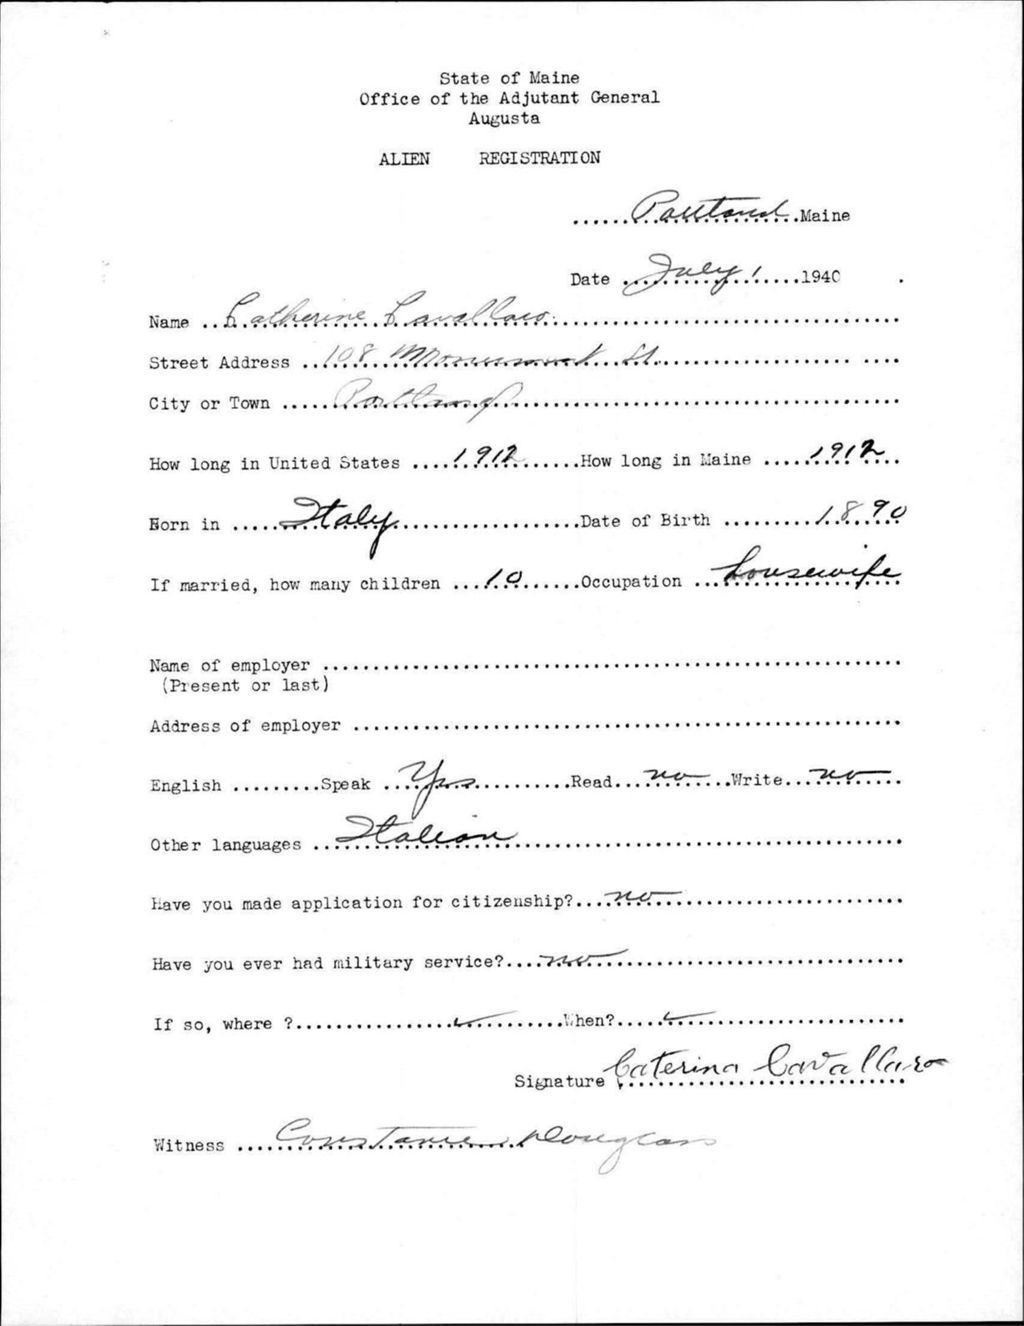 State of Maine
Office of the Adjutant General
Augusta
ALIEN REGISTRATION
......Portland......Maine
Date ...July 1...1940
Name ...Catherine Cavallaro...
Street Address ...108 Monument St....
City or Town ...Portland...
How long in United States ....1912.......How long in Maine .....1912....
Born in .....Italy...................Date of Birth .........1890
If married, how many children ...10.......Occupation ...housewife
Name of employer ..........................................................
(Present or last)
Address of employer .......................................................
English .........Speak ....Yes...........Read....no....Write...no....
Other languages ...Italian...
Have you made application for citizenship?....no...
Have you ever had military service?....no...
If so, where ?................✓..........When?.....✓...
Signature Caterina Cavallaro
Witness ....Constance Douglass